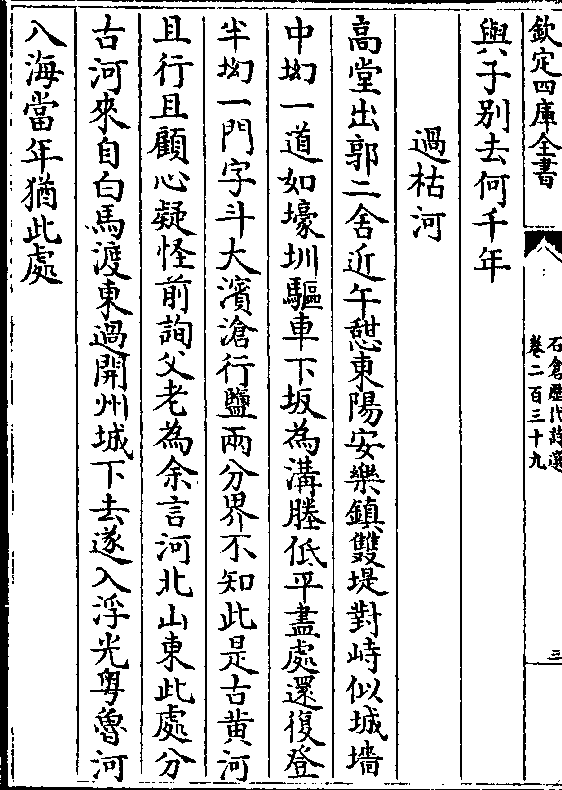 欽定四庫全書
石倉歷代詩選
卷二百三十九
三
與子别去何千年
過枯河
高堂出郭二舍近午憇東陽安樂鎮雙堤對峙似城墻
中坳一道如壕圳驅車下坂為溝塍低平盡處還復登
半坳一門字斗大濱滄行鹽兩分界不知此是古黄河
且行且顧心疑怪前詢父老為余言河北山東此處分
古河來自白馬渡東過開州城下去遂入浮光粤魯河
入海當年猶此處